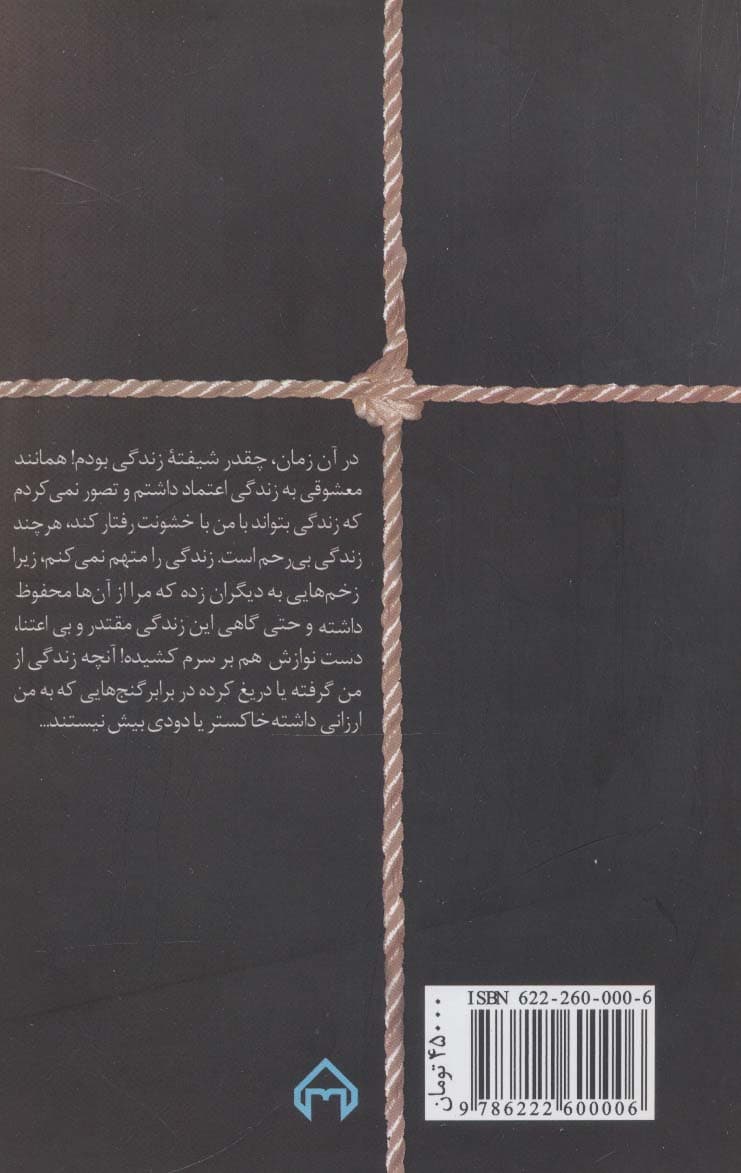 در آن زمان، چقدر شیفتهٔ زندگی بودم! همانند
معشوقی به زندگی اعتماد داشتم و تصور نمی‌کردم
که زندگی بتواند با من با خشونت رفتار کند، هرچند
زندگی بی‌رحم است. زندگی را متهم نمی‌کنم، زیرا
زخم‌هایی به دیگران زده که مرا از آن‌ها محفوظ
داشته و حتی گاهی این زندگی مقتدر و بی اعتنا،
دست نوازش هم بر سرم کشیده! آنچه زندگی از
من گرفته یا دریغ کرده در برابر گنج‌هایی که به من
ارزانی داشته خاکستر یا دودی بیش نیستند...
ISBN 622-260-000-6
۴۵۰۰۰ تومان
9 786222 600006